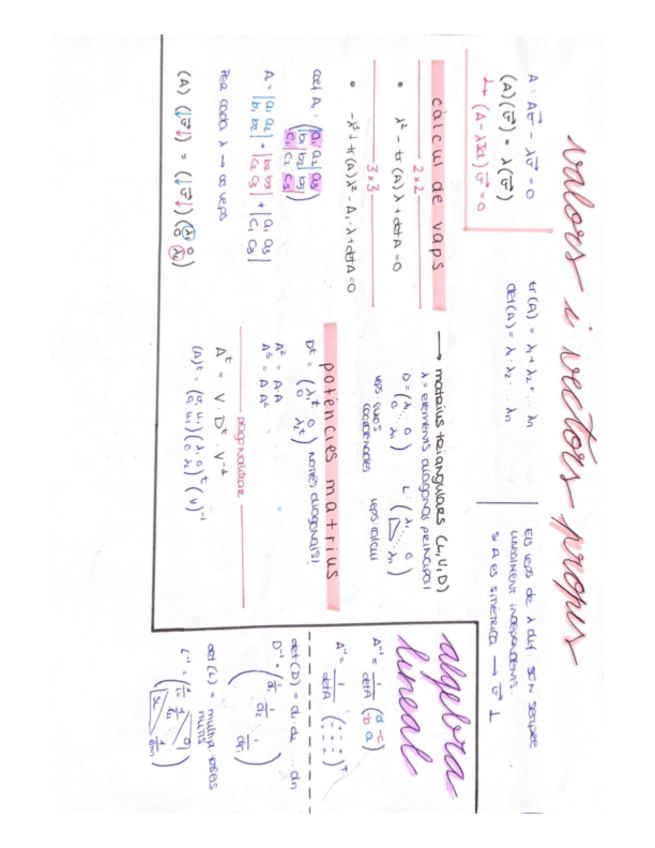 valors i vectors propis
A: Av⃗ - λv⃗ = 0
(A)(v⃗) = λ(v⃗)
↳ (A - λId)v⃗ = 0
tr(A) = λ₁ + λ₂ + ... λn
det(A) = λ₁ · λ₂ ... λn
Els veps de λ dif. són sempre
linealment independents.
S A és simètrica → v⃗ ⊥
càlcul de vaps
2x2
• λ² - tr(A)λ + detA = 0
3x3
• -λ³ + tr(A)λ² - A₁·λ + detA = 0
coef A₁: (a₁ a₂ a₃
b₁ b₂ b₃
c₁ c₂ c₃)
A₁ = |a₁ a₂
b₁ b₂| + |b₂ b₃
c₂ c₃| + |a₁ a₃
c₁ c₃|
Per cada λ → ∞ veps
(A)(↓v⃗↓) = (↓v⃗↓)(λ₁ 0
0 λ₂)
→ matrius triangulars (L,U,D)
λ = elements diagonal principal
D = (λ₁ 0
0 λ₁)
L: (λ₁ 0
λ₁)
veps: eixos
coordenades
veps: càlcul
potències matrius
Dᵗ = (λ₁ᵗ 0
0 λ₂ᵗ) només diagonals!
A² = A·A
A³ = A A²
diagonalitzar
Aᵗ = V · Dᵗ · V⁻¹
(A)ᵗ = (v₁ u₁
v₁ u₁)(λ₁ 0
0 λ₂)ᵗ (V)⁻¹
algebra
lineal
A⁻¹ = 1/detA (d -c
-b a)
A⁻¹ = 1/detA (+ - +
- + -
+ - +)ᵀ
det(D) = d₁·d₂ ... dn
D⁻¹ = (1/d₁
1/d₂
1/dn)
det(L) = multip.
L⁻¹ =